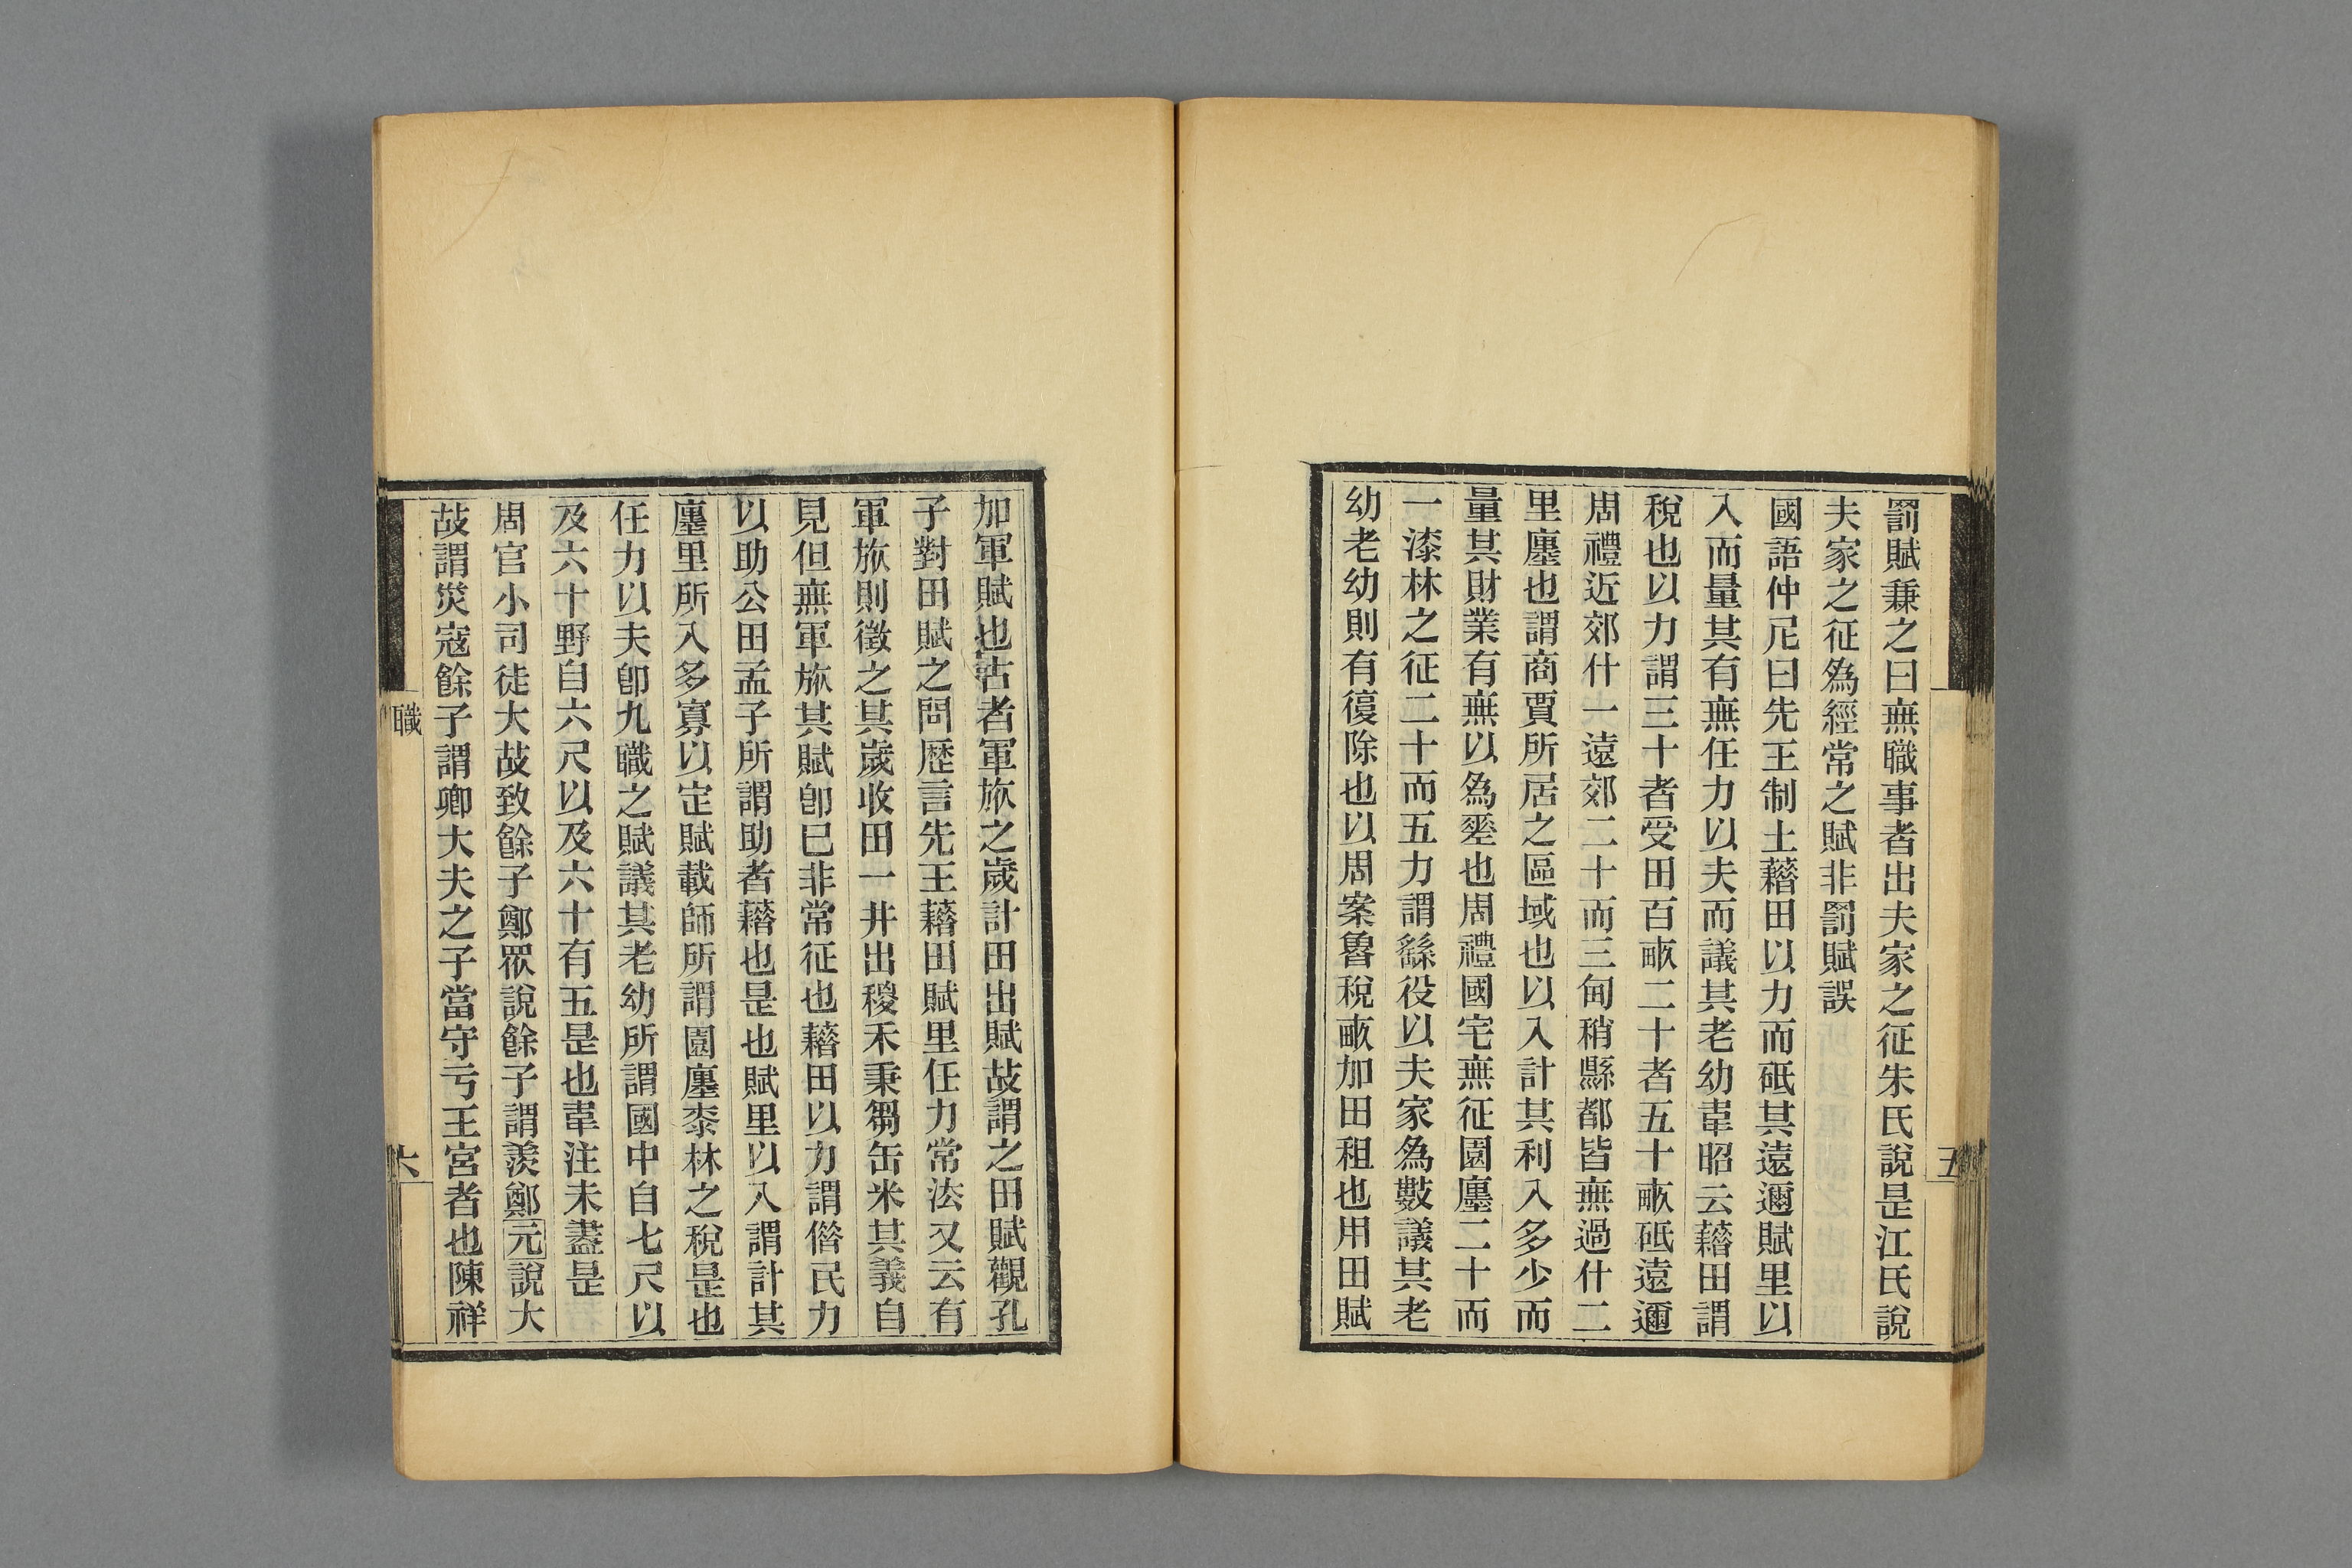 罰賦兼之曰無職事者出夫家之征朱氏說是江氏說
夫家之征為經常之賦非罰賦誤
國語仲尼曰先王制土藉田以力而砥其遠邇賦里以
入而量其有無任力以夫而議其老幼韋昭云藉田謂
稅也以力謂三十者受田百畞二十者五十畞砥遠邇
周禮近郊什一遠郊二十而三甸稍縣都皆無過什二
里廛也謂商賈所居之區域也以入計其利入多少而
量其財業有無以為𡍮也周禮國宅無征園廛二十而
一漆林之征二十而五力謂繇役以夫家為數議其老
幼老幼則有復除也以周案魯稅畞加田租也用田賦
五
加軍賦也古者軍旅之歲計田出賦故謂之田賦觀孔
子對田賦之問歷言先王藉田賦里任力常法又云有
軍旅則徵之其歲收田一井出稯禾秉芻缶米其義自
見但無軍旅其賦卽已非常征也藉田以力謂偺民力
以助公田孟子所謂助者藉也是也賦里以入謂計其
廛里所入多寡以定賦載師所謂園廛桼林之稅是也
任力以夫卽九職之賦議其老幼所謂國中自七尺以
及六十野自六尺以及六十有五是也韋注未蓋是
周官小司徒大故致餘子鄭眾說餘子謂羨鄭元說大
故謂災寇餘子謂卿大夫之子當守亏王宮者也陳祥
職
六